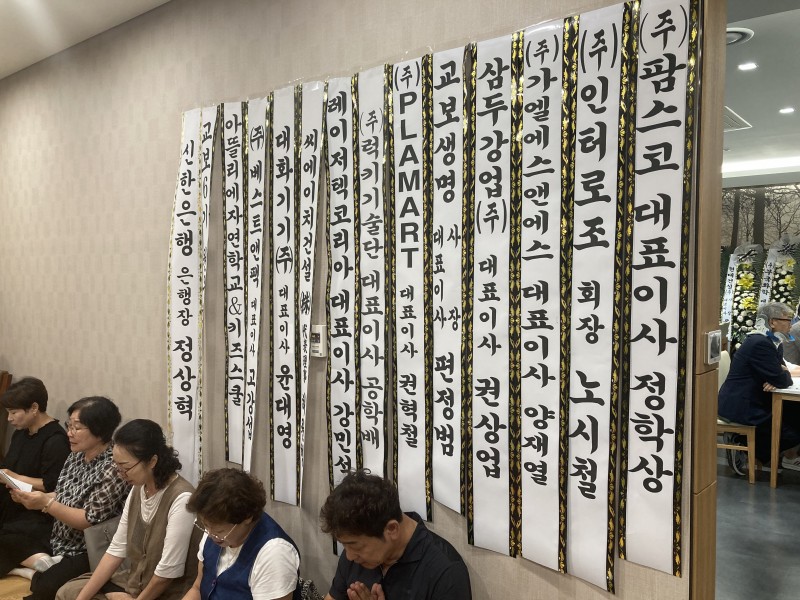 신한은행 은행장 정상혁
교보
아뜰리에자연학교&키즈스쿨
(주)베스트앤팩 대표이사 고강섭
대화기기(주) 대표이사 윤대영
씨에이치건설(株)
레이저텍코리아 대표이사 강민석
(주)럭키기술단 대표이사 공학배
(주)PLAMART 대표이사 권혁철
교보생명 대표이사 사장 편정범
삼두강업(주) 대표이사 권상업
(주)가엘에스앤에스 대표이사 양재열
(주)인터로조 회장 노시철
(주)팜스코 대표이사 정학상